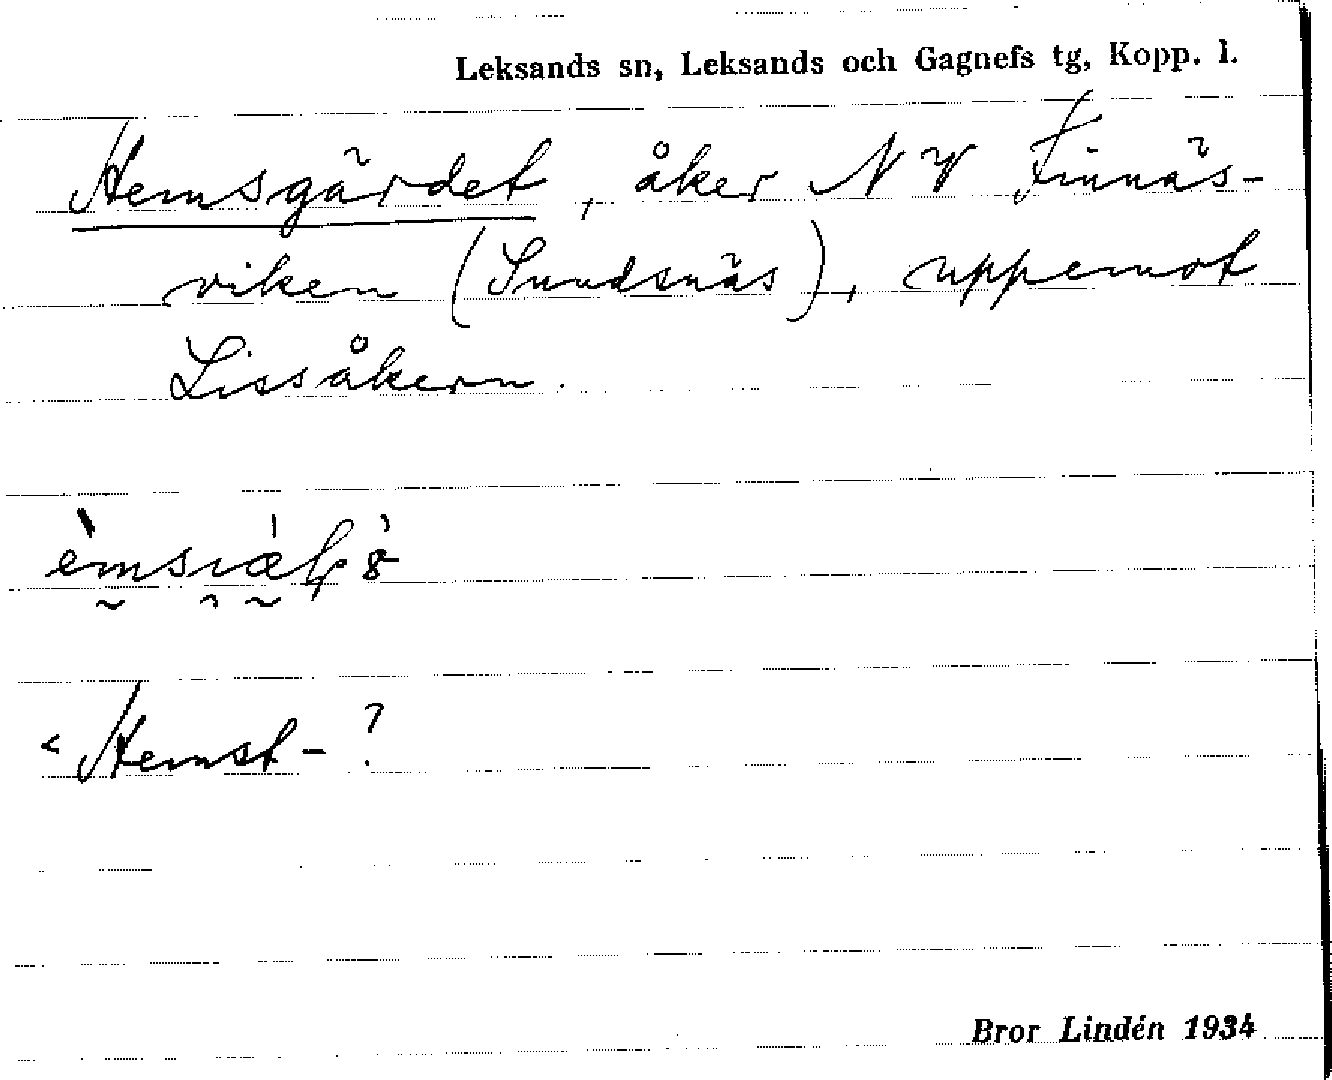 Leksands sn, Leksands och Gagnefs tg, Kopp. l.
Hemsgärdet, åker NV Finnäs-
viken (Sundsnäs), uppemot
Lissåkern.
< Hemst- ?
Bror Lindén 1934